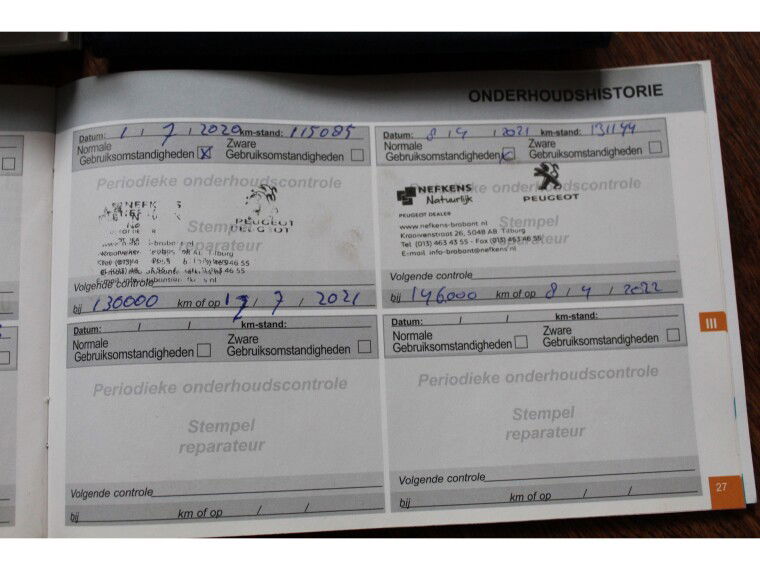 ONDERHOUDSHISTORIE
Datum: 1 / 7 / 2020 km-stand: 115085
Normale
Gebruiksomstandigheden
Zware
Gebruiksomstandigheden
Periodieke onderhoudscontrole
PEUGEOT
Stempel
reparateur
Volgende controle
bij 130000 km of op / 7 / 2021
Datum: 8 / 4 / 2021 km-stand: 131144
Normale
Gebruiksomstandigheden
Zware
Gebruiksomstandigheden
Periodieke onderhoudscontrole
NEFKENS
Natuurlijk
PEUGEOT
PEUGEOT DEALER
www.nefkens-brabant.nl
Kraaivenstraat 26, 5048 AB Tilburg
Tel. (013) 463 43 55 - Fax (013) 463 46 55
E-mail info-brabant@nefkens.nl
Stempel
reparateur
Volgende controle
bij 146000 km of op 8 / 4 / 2022
Datum: / / km-stand:
Normale
Gebruiksomstandigheden
Zware
Gebruiksomstandigheden
Periodieke onderhoudscontrole
Stempel
reparateur
Volgende controle
bij km of op / /
Datum: / / km-stand:
Normale
Gebruiksomstandigheden
Zware
Gebruiksomstandigheden
Periodieke onderhoudscontrole
Stempel
reparateur
Volgende controle
bij km of op / /
III
27